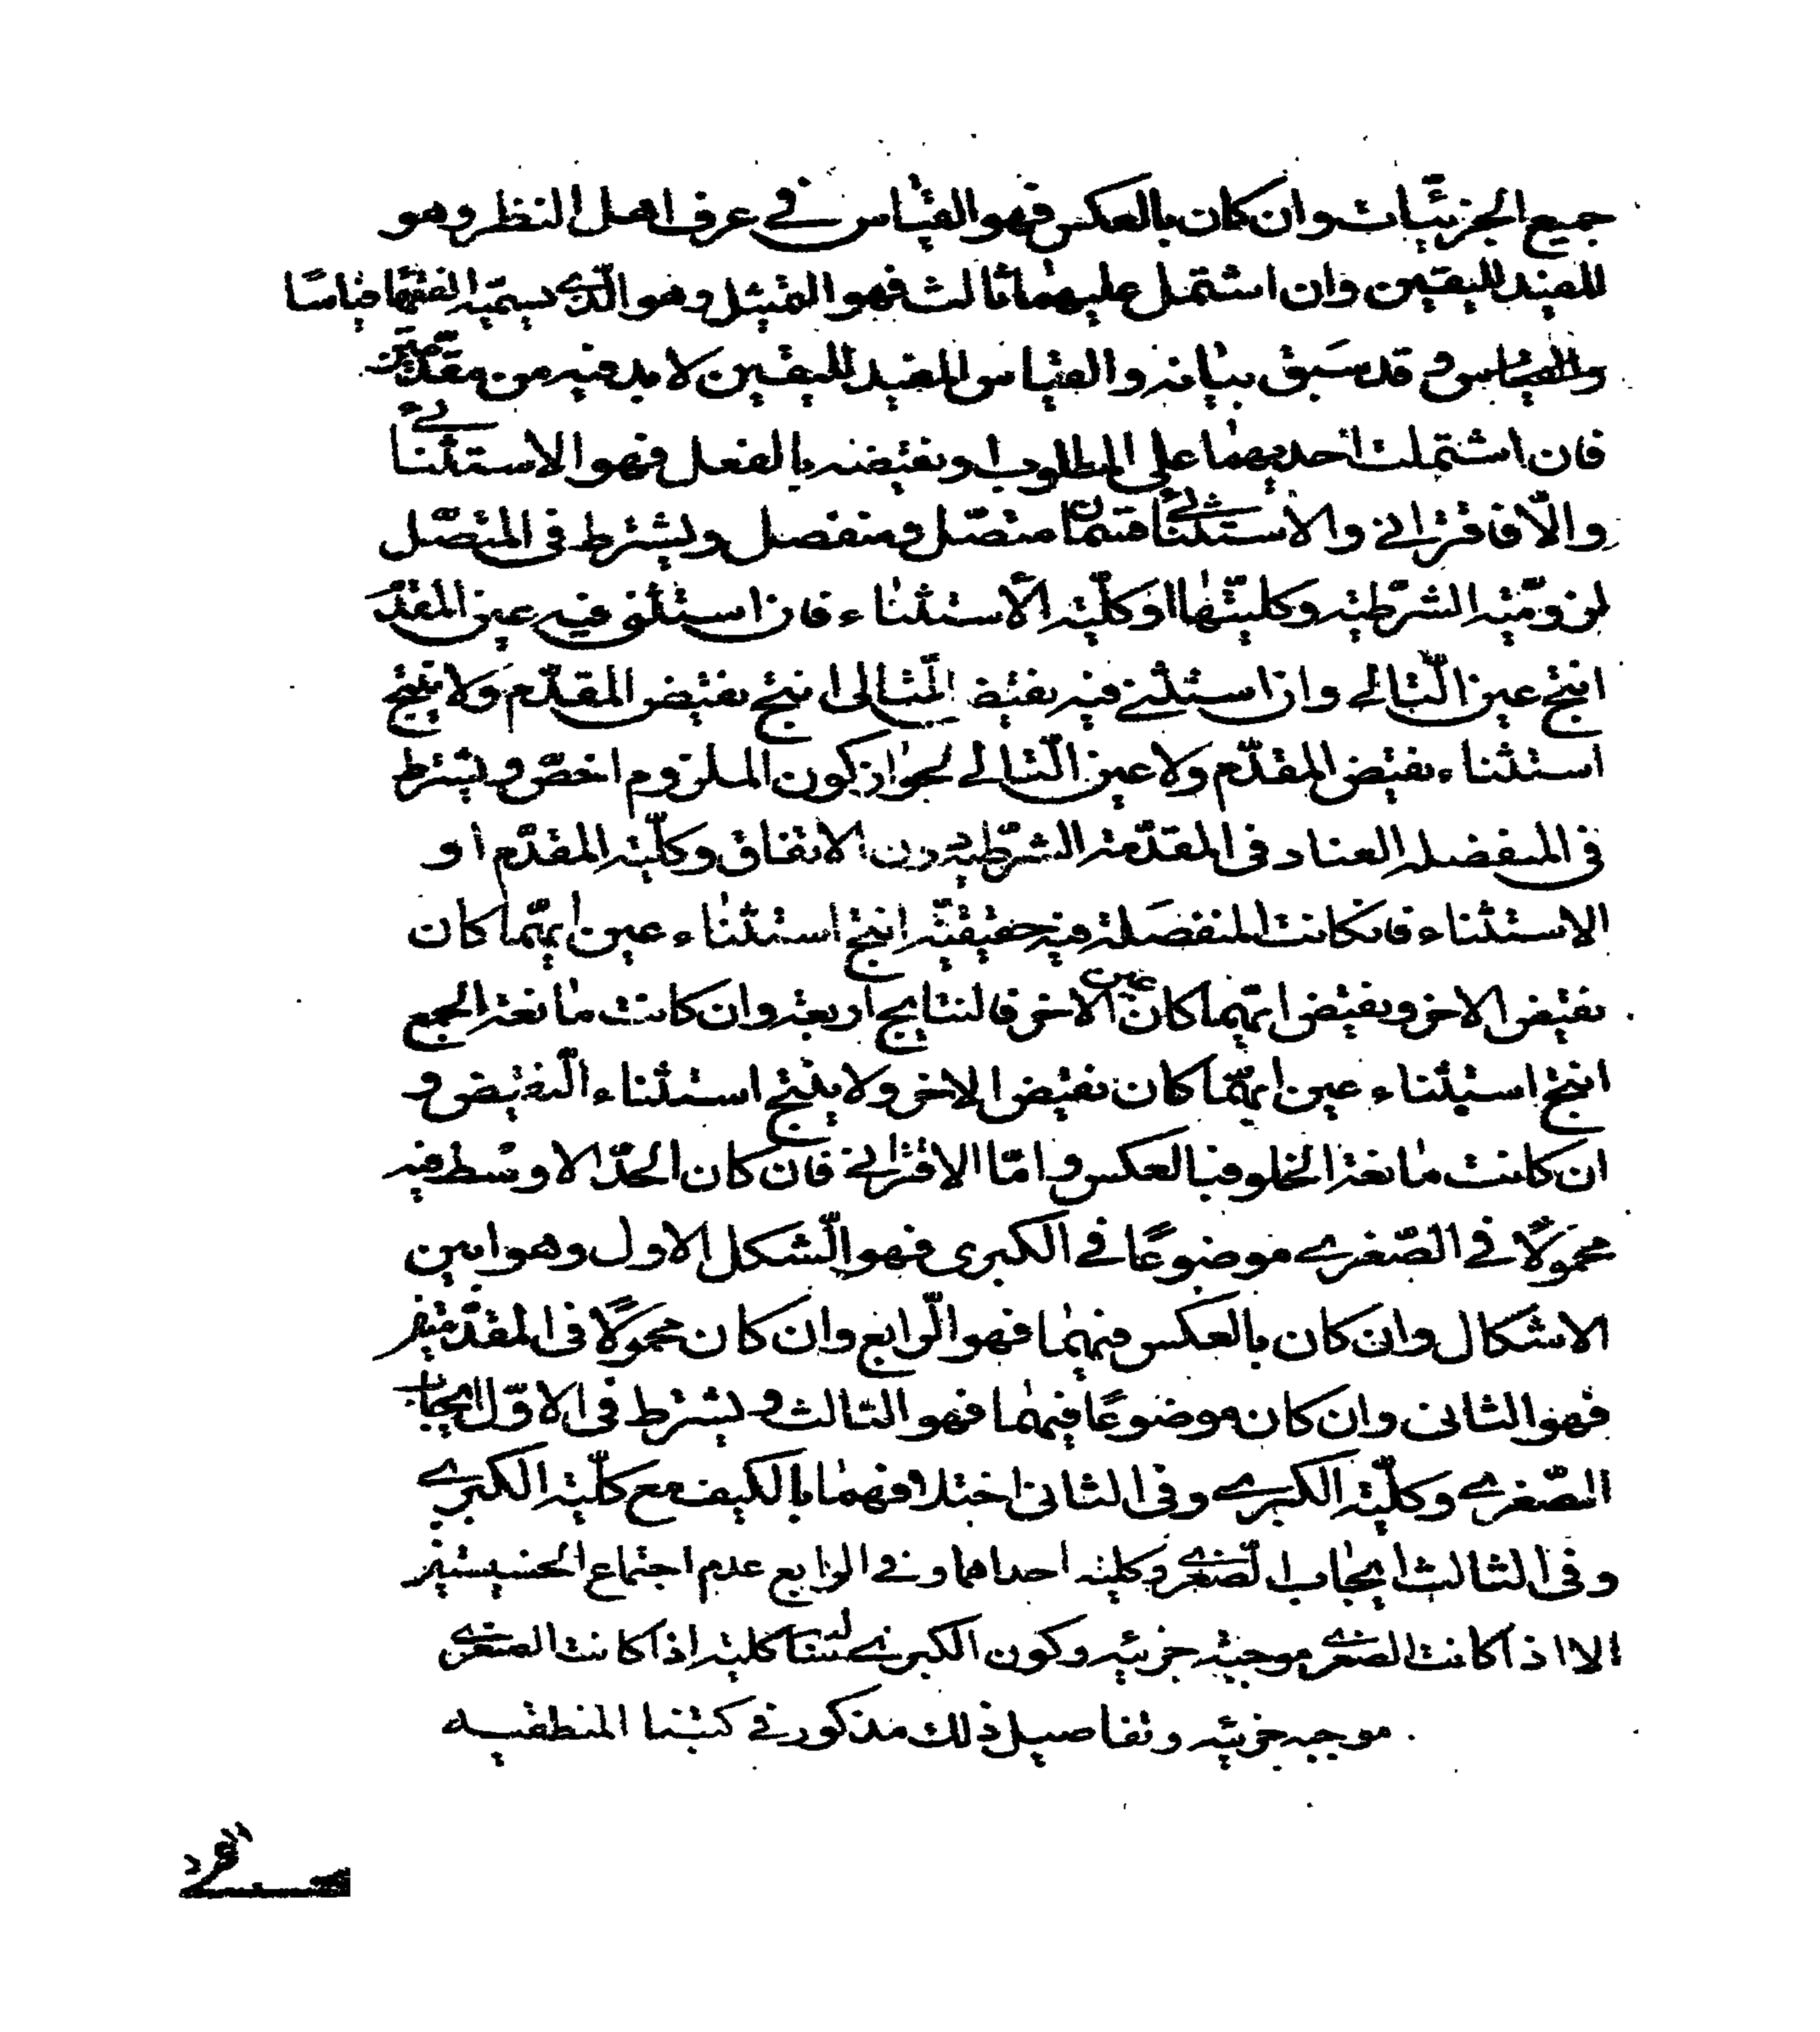 جميع الجزئيّات وان كان بالعكس فهو القياس في عرف اهل النظر وهو
المفيد لليقين وان اشتمل عليهما ثالث فهو التمثيل وهو الّذى يسمّيه الفقهاء قياسًا
وقد سَبق بيانه والقياس المفيد لليقين لا بد فيه من مقدّمتين
فان اشتملت احديهما على المطلوب او نقيضه بالفعل فهو الاستثنائے
والّا فاقترانى والاستثنائے قسمان متصّل ومنفصل ويشترط فى المتصّل
لزوميّته الشرطية وكليتّها او كلّية الاستثناء فان استثنى فيه عين المقدّم
انتج عين التّالى وان استثنى فيه نقيض التّالى انتج نقيض المقدّم ولا ينتج
استثناء نقيض المقدّم ولا عين التّالى لجواز كون الملزوم اخصّ ويشترط
فى المنفصله العناد فى المقدّمة الشرطّية دون الاتفاق وكلّية المقدّم او
الاستثناء فان كانت المنفصَلة فيه حقيقيّة انتج استثناء عين ايّهما كان
نقيض الاخر ونقيض ايّهما كان عين الاخر فالنتايج اربعة وان كانت مانعة الجمع
انتج استثناء عين ايّهما كان نقيض الاخر ولا ينتج استثناء النّقيض و
ان كانت مانعة الخلو فبالعكس وامّا الاقترانى فان كان الحدّ الاوسط فيه
محمولًا في الصّغرى موضوعًا في الكبرى فهو الّشكل الاول وهو ابين
الاشكال وان كان بالعكس فيهما فهو الّرابع وان كان محمولًا فى المقدّمتين
فهو الثانى وان كان موضوعًا فيهما فهو الثالث ويشترط فى الاوّل ايجاب
الصّغرى وكلّية الكبرى وفى الثانى اختلافهما بالكيف مع كلّية الكبرى
وفى الثالث ايجاب الصّغرى وكلية احداهما وفى الرابع عدم اجتماع الخسيستين
الا اذا كانت الصغرى موجبة جزئيه وكون الكبرى سالبة كلية اذا كانت الصغرى
موجبه جزئيه وتفاصيل ذلك مذكور في كتبنا المنطقيه